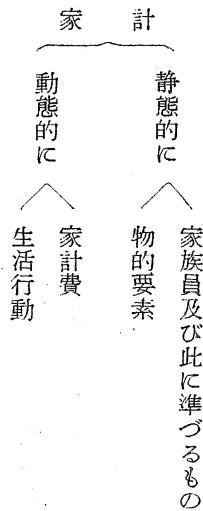 家計
静態的に
家族員及び此に準づるもの
物的要素
動態的に
家計費
生活行動